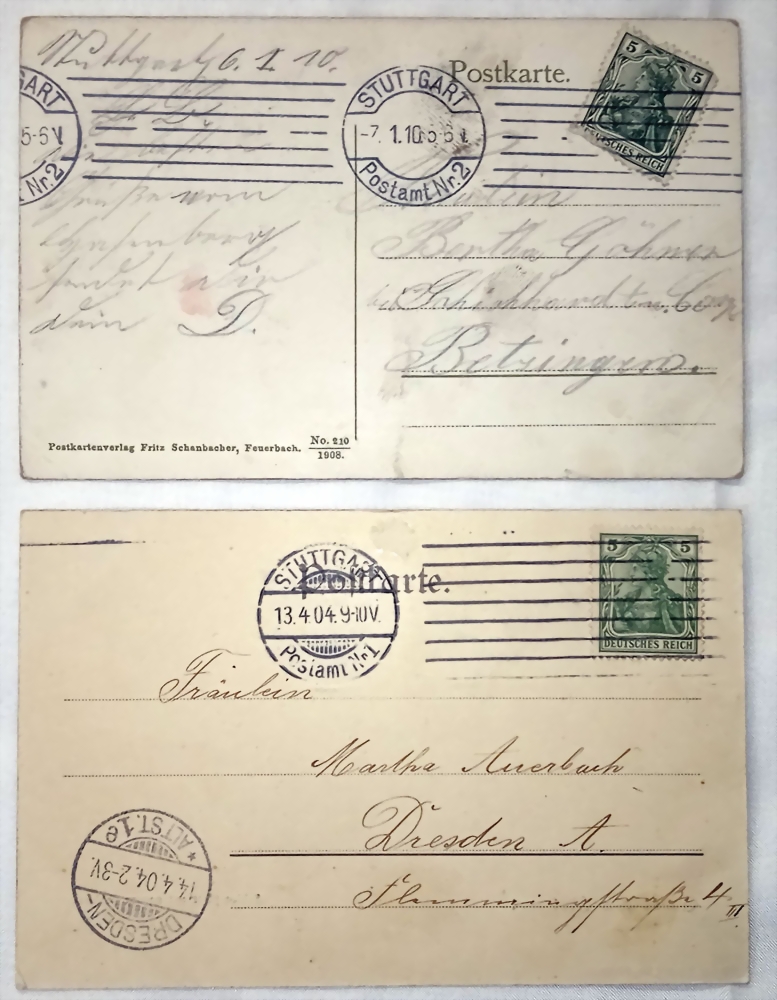 Stuttgart 6.I.10.
Postkarte.
5 5
DEUTSCHES REICH
ART
5-6V
t Nr. 2
STUTTGART
-7.1.10.5-6V.
Postamt Nr. 2
Fräulein
Bertha Göhner
Betzingen.
sendet Dir
Dein D.
Postkartenverlag Fritz Schanbacher, Feuerbach.
No. 210
1908.
Postkarte.
STUTTGART
13.4.04.9-10V.
Postamt Nr. 1
5 5
DEUTSCHES REICH
Fräulein
Martha Auerbach
Dresden A.
Flemmingstraße 4 III
DRESDEN-
14.4.04.2-3V.
* ALTST. 1e